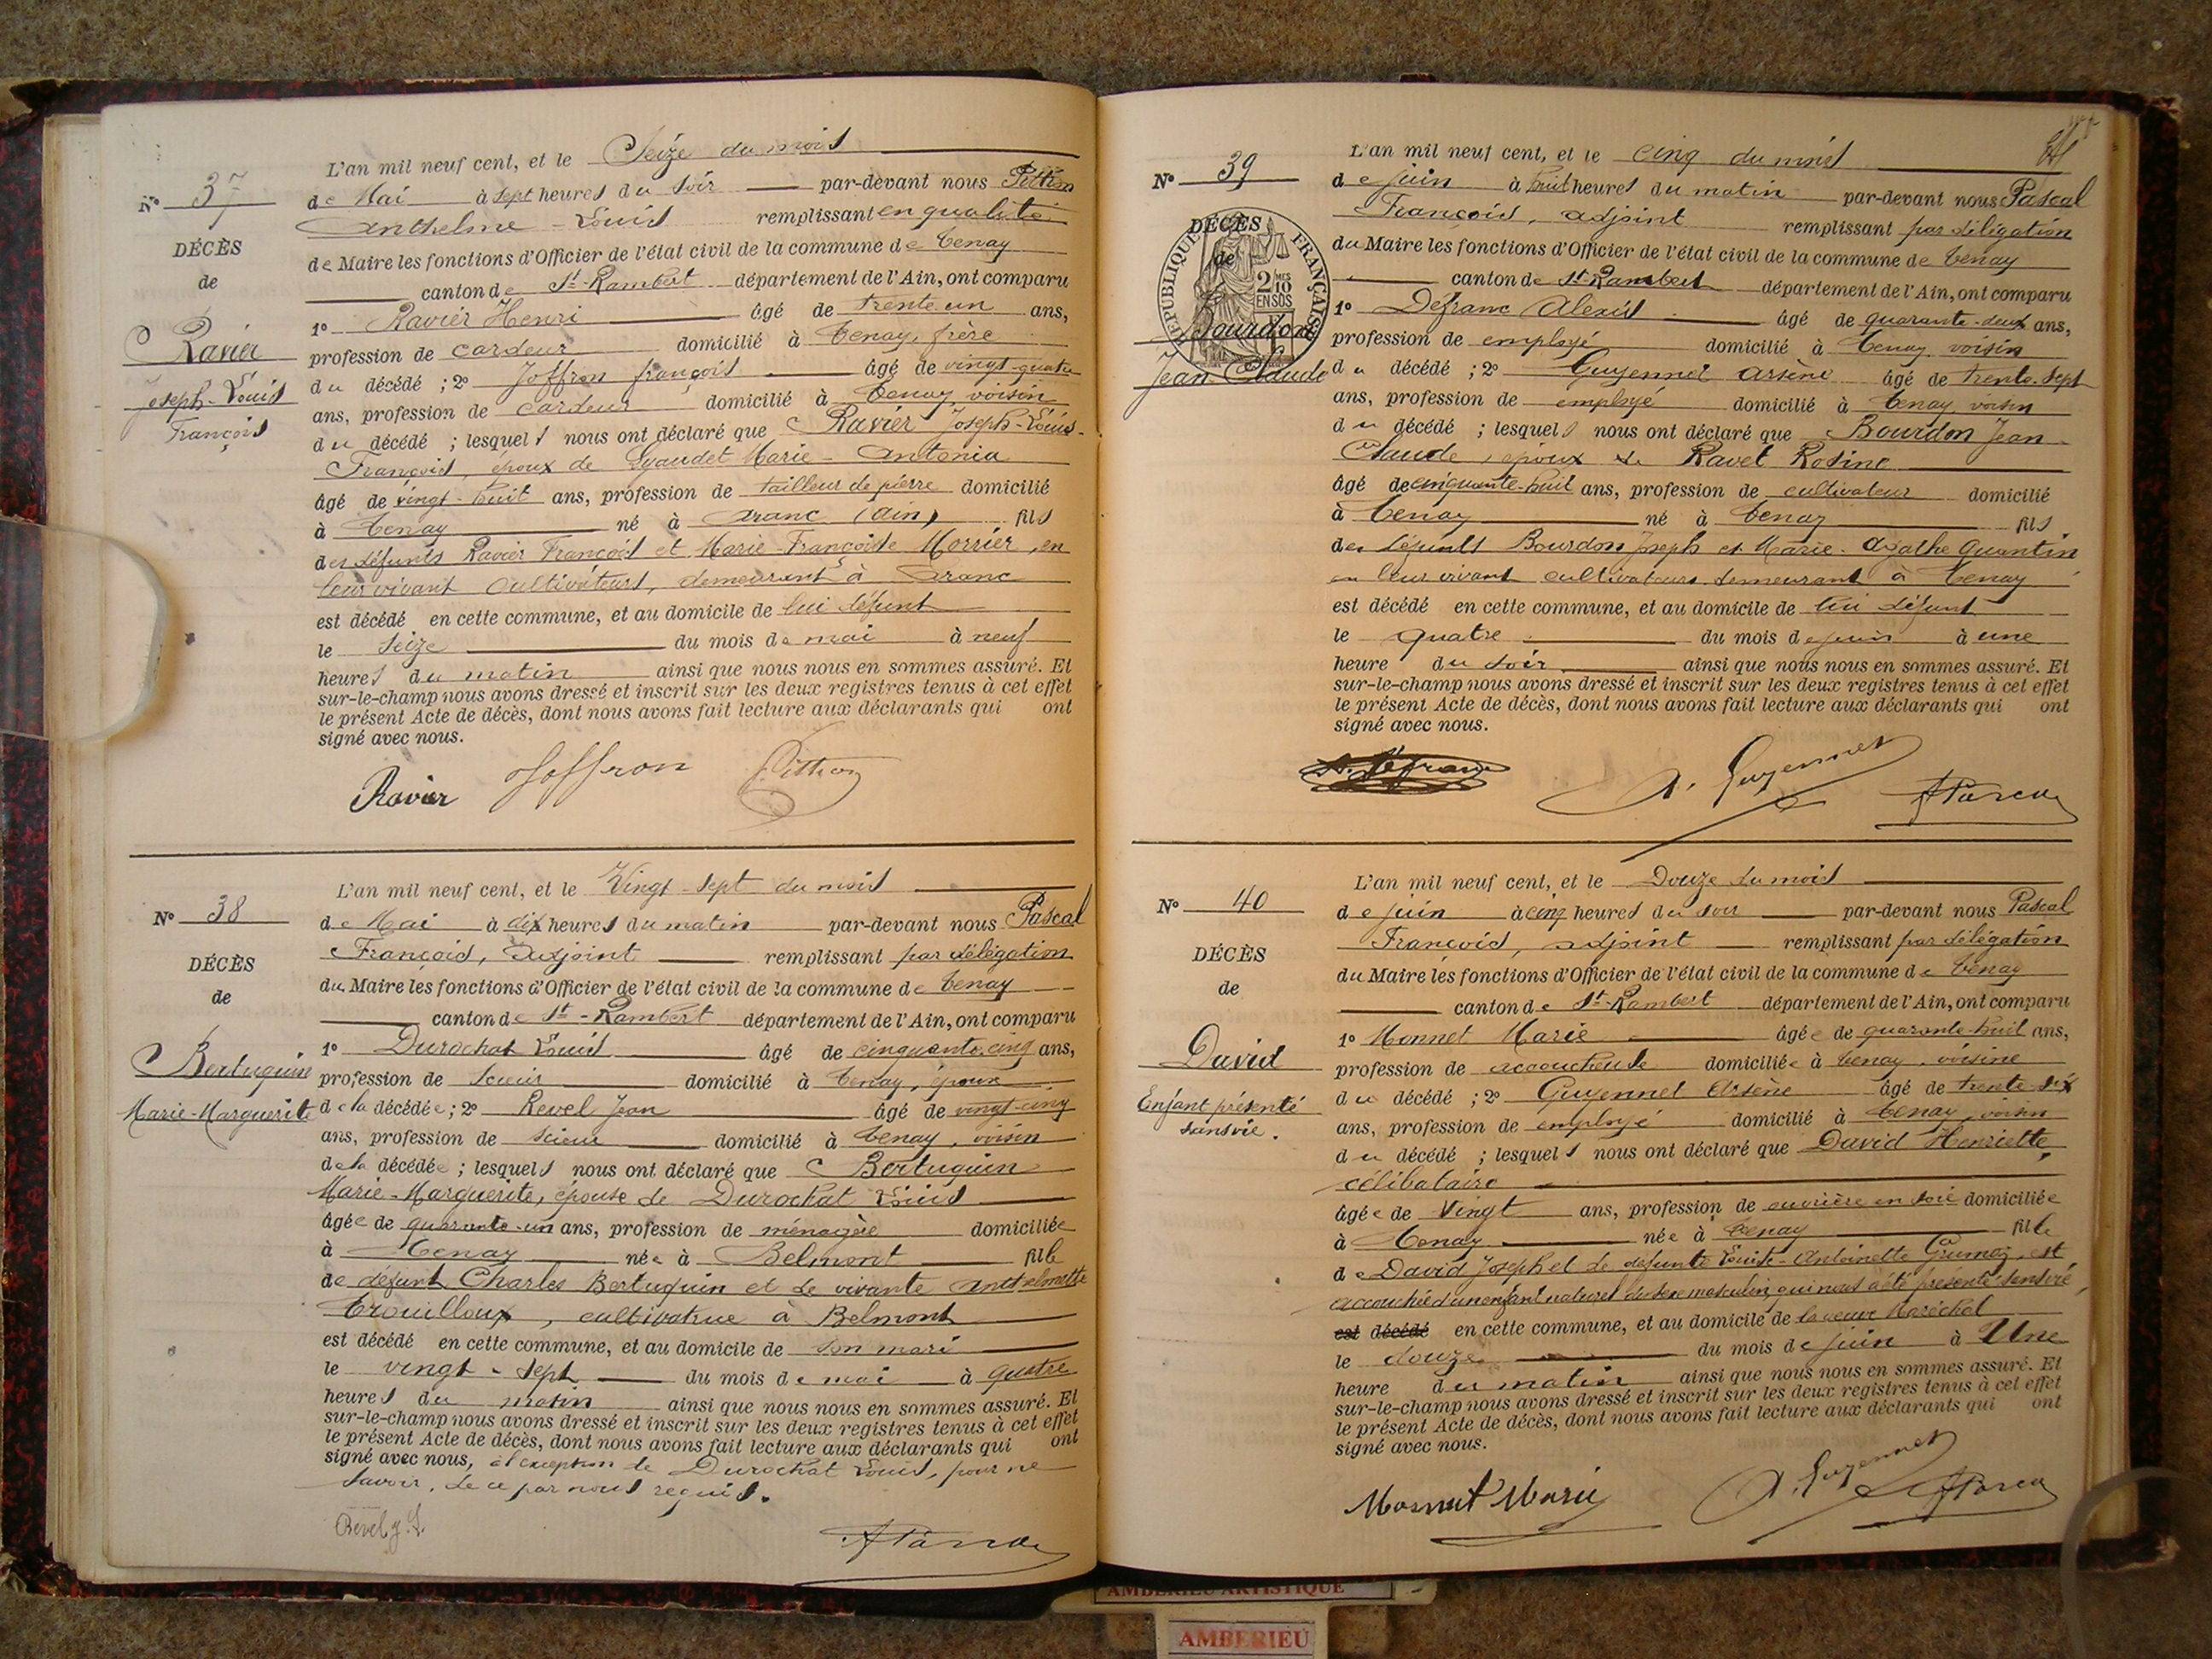 L'an mil neuf cent, et le Seize du mois
N° 37
de Mai à sept heures du soir par-devant nous Pittion
Anthelme-Louis remplissant en qualité
DÉCÈS
de Maire les fonctions d'Officier de l'état civil de la commune de Tenay
de
canton de St-Rambert département de l'Ain, ont comparu
1° Ravier Henri âgé de trente un ans,
Ravier
profession de cardeur domicilié à Tenay, frère
du décédé ; 2° Joffron françois âgé de vingt-quatre
Joseph-Louis
ans, profession de cardeur domicilié à Tenay, voisin
François
du décédé ; lesquels nous ont déclaré que Ravier Joseph-Louis-
François, époux de Gyaudet Marie-Antonia
âgé de vingt-huit ans, profession de tailleur de pierre domicilié
à Tenay né à Aranc (Ain) fils
des défunts Ravier François et Marie-Françoise Morrier, en
leur vivant cultivateurs, demeurant à Aranc
est décédé en cette commune, et au domicile de lui défunt
le seize du mois de mai à neuf
heures du matin ainsi que nous nous en sommes assuré. Et
sur-le-champ nous avons dressé et inscrit sur les deux registres tenus à cet effet
le présent Acte de décès, dont nous avons fait lecture aux déclarants qui ont
signé avec nous.
Ravier Joffron Pittion
L'an mil neuf cent, et le Vingt-sept du mois
N° 38
de Mai à dix heures du matin par-devant nous Pascal
François, Adjoint remplissant par délégation
DÉCÈS
du Maire les fonctions d'Officier de l'état civil de la commune de Tenay
de
canton de St-Rambert département de l'Ain, ont comparu
1° Durochat Louis âgé de cinquante cinq ans,
Bertuguin
profession de scieur domicilié à Tenay, époux
Marie-Marguerite
de la décédée ; 2° Revel Jean âgé de vingt-cinq
ans, profession de scieur domicilié à Tenay, voisin
de la décédée ; lesquels nous ont déclaré que Bertuguin
Marie-Marguerite, épouse de Durochat Louis
âgée de quarante-un ans, profession de ménagère domiciliée
à Tenay née à Belmont fille
de défunt Charles Bertuguin et de vivante Anthelmette
Trouilloux, cultivatrice à Belmont
est décédé en cette commune, et au domicile de son mari
le vingt-sept du mois de mai à quatre
heures du matin ainsi que nous nous en sommes assuré. Et
sur-le-champ nous avons dressé et inscrit sur les deux registres tenus à cet effet
le présent Acte de décès, dont nous avons fait lecture aux déclarants qui ont
signé avec nous, à l'exception de Durochat Louis, pour ne
savoir, de ce par nous requis.
Revel J. FPascal
L'an mil neuf cent, et le cinq du mois
N° 39
de juin à huit heures du matin par-devant nous Pascal
François, adjoint remplissant par délégation
DÉCÈS
RÉPUBLIQUE FRANÇAISE
2 MES
10
EN SUS
du Maire les fonctions d'Officier de l'état civil de la commune de Tenay
de
canton de St-Rambert département de l'Ain, ont comparu
1° Defranc Alexis âgé de quarante-deux ans,
Bourdon
profession de employé domicilié à Tenay, voisin
Jean-Claude
du décédé ; 2° Guyennet Arsène âgé de trente-sept
ans, profession de employé domicilié à Tenay, voisin
du décédé ; lesquels nous ont déclaré que Bourdon Jean-
Claude, époux de Ravet Rosine
âgé de cinquante-huit ans, profession de cultivateur domicilié
à Tenay né à Tenay fils
des défunts Bourdon Joseph et Marie-Agathe Quantin
en leur vivant cultivateurs demeurant à Tenay
est décédé en cette commune, et au domicile de lui défunt
le quatre du mois de juin à une
heure du soir ainsi que nous nous en sommes assuré. Et
sur-le-champ nous avons dressé et inscrit sur les deux registres tenus à cet effet
le présent Acte de décès, dont nous avons fait lecture aux déclarants qui ont
signé avec nous.
A. Defranc A. Guyennet FPascal
L'an mil neuf cent, et le Douze du mois
N° 40
de juin à cinq heures du soir par-devant nous Pascal
François, adjoint remplissant par délégation
DÉCÈS
du Maire les fonctions d'Officier de l'état civil de la commune de Tenay
de
canton de St-Rambert département de l'Ain, ont comparu
1° Monnet Marie âgée de quarante-huit ans,
David
profession de accoucheuse domiciliée à Tenay, voisine
Enfant présenté
du décédé ; 2° Guyennet Arsène âgé de trente-six
sans vie.
ans, profession de employé domicilié à Tenay, voisin
du décédé ; lesquels nous ont déclaré que David Henriette,
célibataire
âgée de Vingt ans, profession de ouvrière en soie domiciliée
à Tenay née à Tenay fille
de David Joseph et de défunte Louise-Antoinette Grumoz, est
accouchée d'un enfant naturel du sexe masculin qui nous a été présenté sans vie,
est décédé en cette commune, et au domicile de la veuve Maréchal
le douze du mois de juin à Une
heure du matin ainsi que nous nous en sommes assuré. Et
sur-le-champ nous avons dressé et inscrit sur les deux registres tenus à cet effet
le présent Acte de décès, dont nous avons fait lecture aux déclarants qui ont
signé avec nous.
Monnet Marie A. Guyennet FPascal
AMBERIEU ARTISTIQUE
AMBERIEU